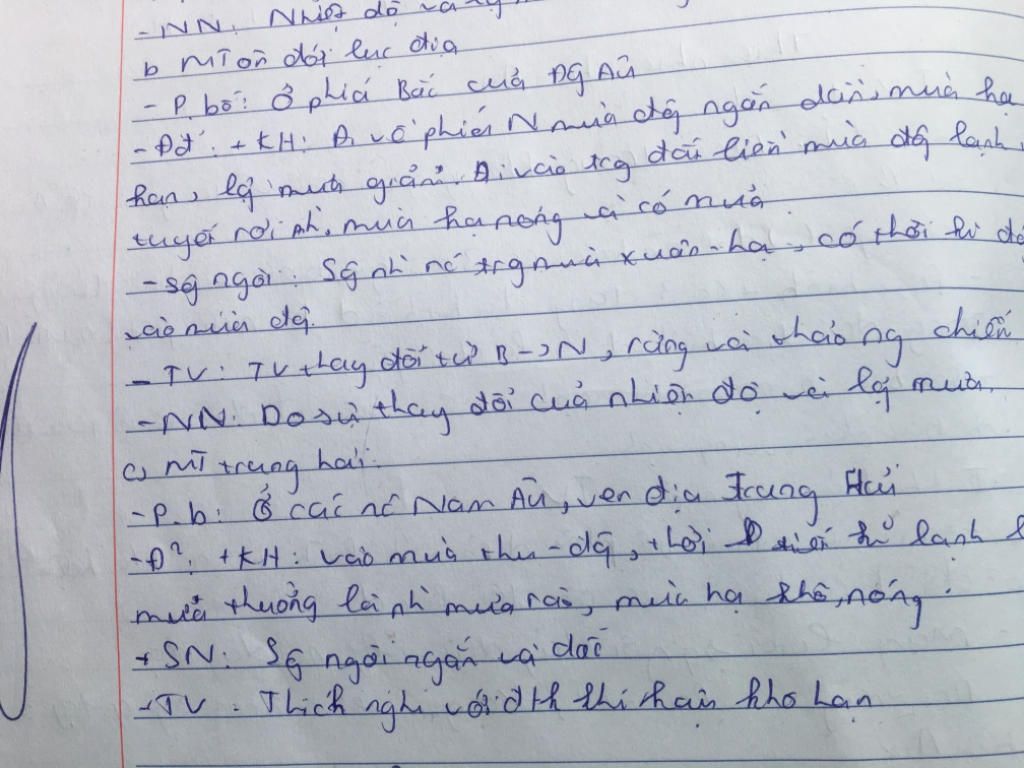 - NN: Nhiệt độ và
b MT ôn đới lục địa
- P. bố: Ở phía Bắc của ĐG Âu
- Đđ: + KH: Đi về phía N mùa đg ngắn dần, mùa hạ
hạn, lg mưa giảm. Đi vào trg đất liền mùa đg lạnh,
tuyết rơi nh, mùa hạ nóng và có mưa
- Sg ngòi: Sg nh nc trg mùa xuân-hạ, có thời kì đg
vào mùa đg.
- TV: TV thay đổi từ B -> N, rừng và thảo ng chiếm
- NN: Do sự thay đổi của nhiệt độ và lg mưa.
c, MT trung hải.
- P.b: Ở các nc Nam Âu, ven địa Trung Hải
- Đ²: + KH: vào mùa thu - đg, thời tiết lạnh
mưa thường là nh mưa rào, mùa hạ khô, nóng.
+ SN: Sg ngòi ngắn và dốc
- TV: Thích nghi với đk khí hậu khô hạn